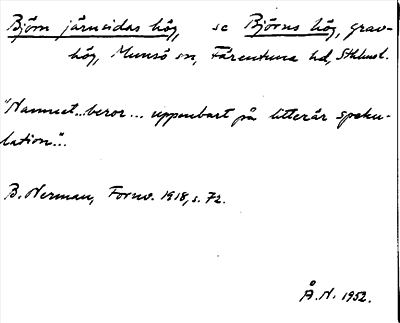 Björn järnsidas hög, se Björns hög, grav-
hög, Munsö sn, Färentuna hd, Sthlmsl.
"Namnet...beror... uppenbart på litterär speku-
lation"..
B. Nerman, Fornv. 1918, s. 72.
Å. N. 1952.